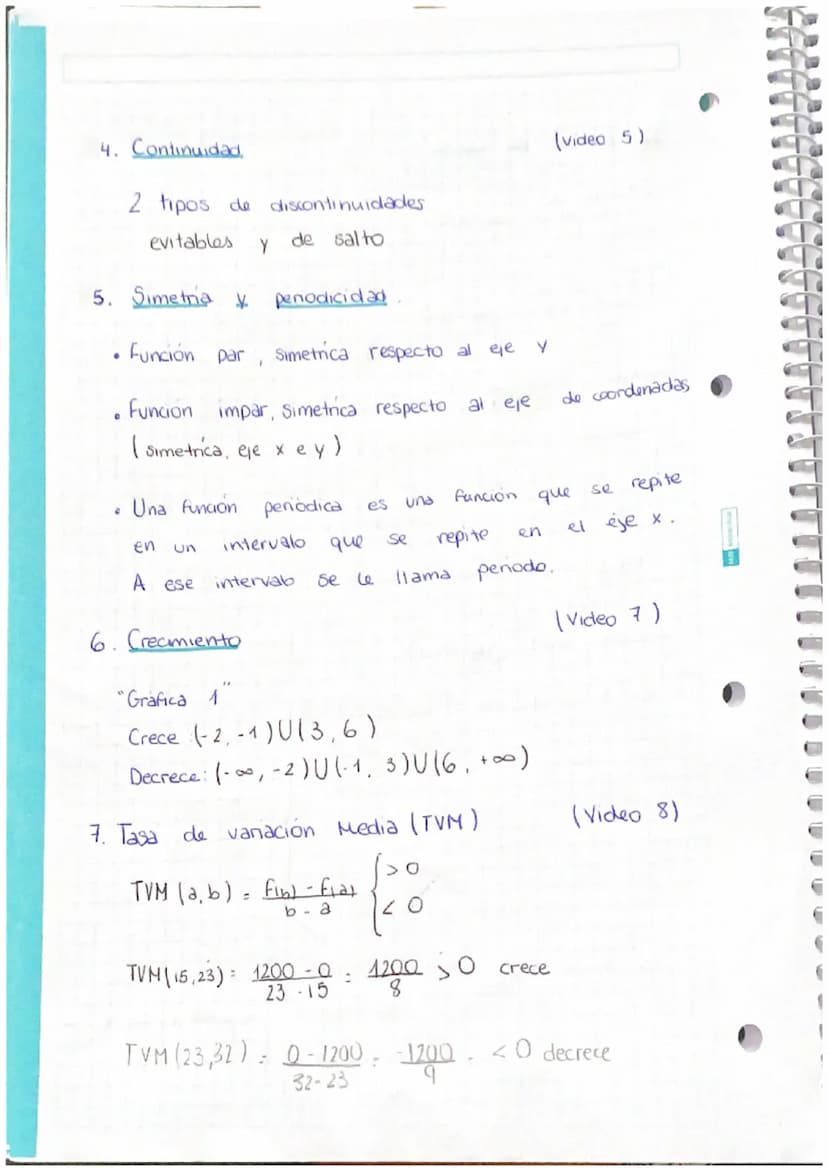 4. Continuidad (Video 5)
2 tipos de discontinuidades
evitables y de salto
5. Simetría y periodicidad.
• Función par, simetrica respecto al eje y
• Función impar, simetrica respecto al eje de coordenadas
(simetrica, eje x e y)
• Una función periòdica es una función que se repite
en un intervalo que se repite en el éje x.
A ese intervalo se le llama periodo.
6. Crecimiento (Video 7)
"Gráfica 1"
Crece: (-2, -1)U(3, 6)
Decrece: (-∞, -2)U(-1, 3)U(6, +∞)
7. Tasa de variación Media (TVM) (Video 8)
TVM (a,b) = f(b) - f(a) / b - a { > 0 < 0
TVM(15,23) = 1200 - 0 / 23 - 15 = 1200 / 8 > 0 crece
TVM (23,32) = 0 - 1200 / 32 - 23 = -1200 / 9 = < 0 decrece